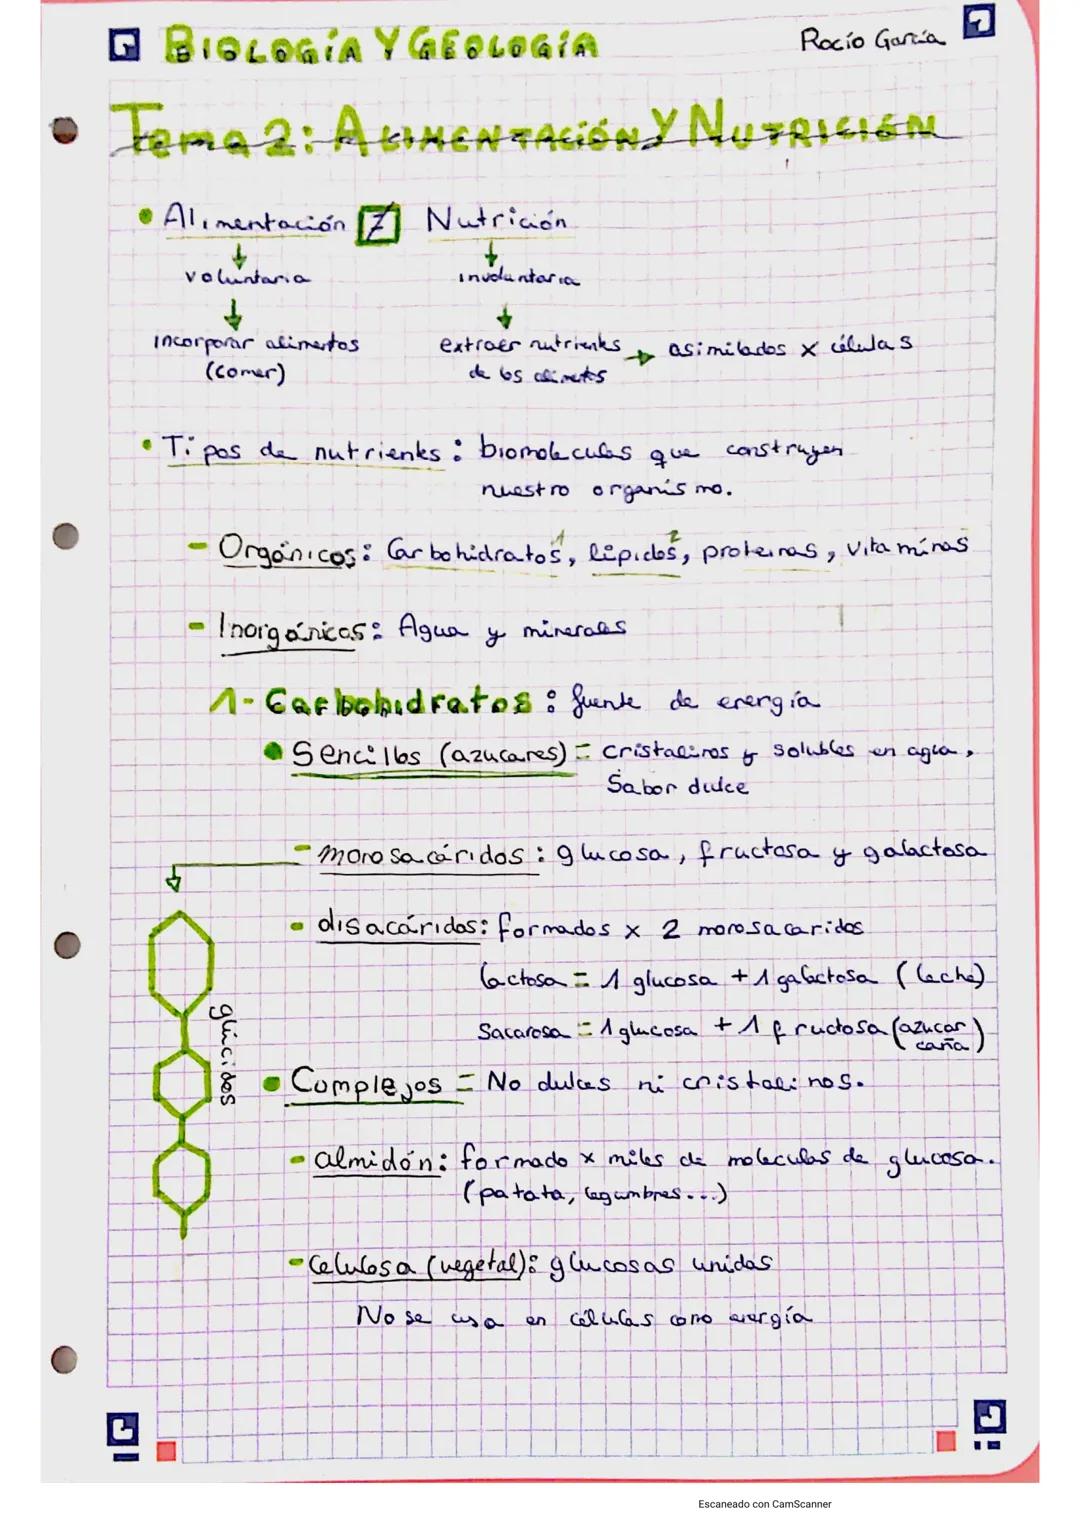 BIOLOGÍA Y GEOLOGÍA
Rocío García
Tema 2: ALIMENTACIÓN Y NUTRICIÓN
• Alimentación ≠ Nutrición
voluntaria involuntaria
incorporar alimentos extraer nutrientes → asimilados x células
(comer) de los alimentos
• Tipos de nutrientes: biomoleculas que construyen
nuestro organismo.
- Orgánicos: Carbohidratos¹, lípidos², proteinas, vitaminas
- Inorgánicos: Agua y minerales
1- Carbohidratos: fuente de energía
• Sencillos (azucares) = cristalinos y solubles en agua,
Sabor dulce
- monosacáridos: glucosa, fructosa y galactosa
- disacáridos: formados x 2 monosacaridos
lactosa = 1 glucosa + 1 galactosa (leche)
Sacarosa = 1 glucosa + 1 fructosa (azucar caña)
glúcidos
• Complejos = No dulces ni cristalinos.
- almidón: formado x miles de moleculas de glucosa.
(patata, legumbres...)
- Celulosa (vegetal): glucosas unidas
No se usa en células como energía
Escaneado con CamScanner